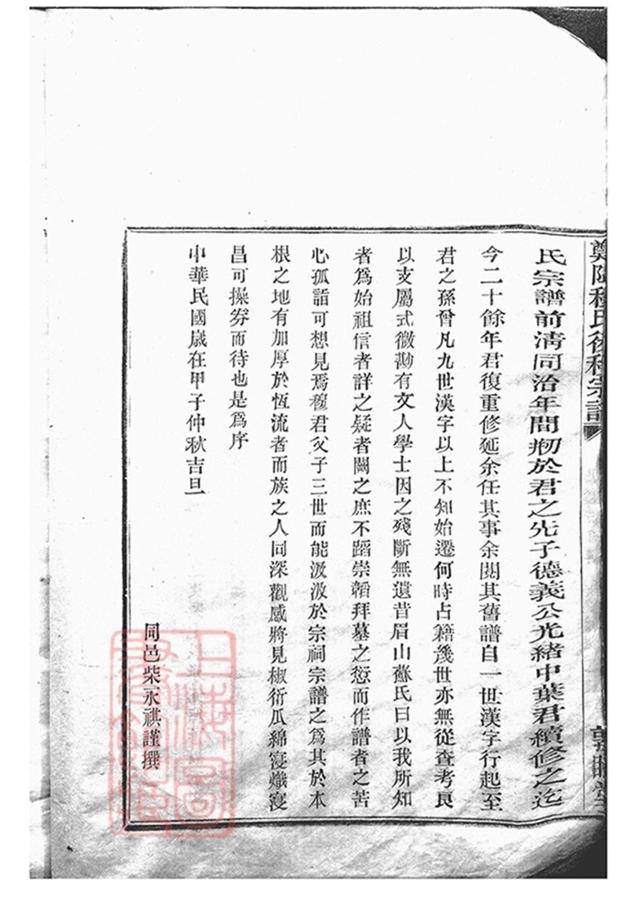 氏宗譜前清同治年間刱於君之先子德義公光緒中葉君續修之迄
今二十餘年君復重修延余任其事余閱其舊譜自一世漢字行起至
君之孫曾凡九世漢字以上不知始遷何時占籍幾世亦無從查考良
以支屬式微尠有文人學士因之殘斷無遺昔眉山蘇氏曰以我所知
者為始祖信者詳之疑者闕之庶不蹈崇韜拜墓之愆而作譜者之苦
心孤詣可想見焉穜君父子三世而能汲汲於宗祠宗譜之為其於本
根之地有加厚於恆流者而族之人同深觀感將見椒衍瓜綿寖熾寖
昌可操券而待也是為序
中華民國歲在甲子仲秋吉旦
同邑柴永祺謹撰